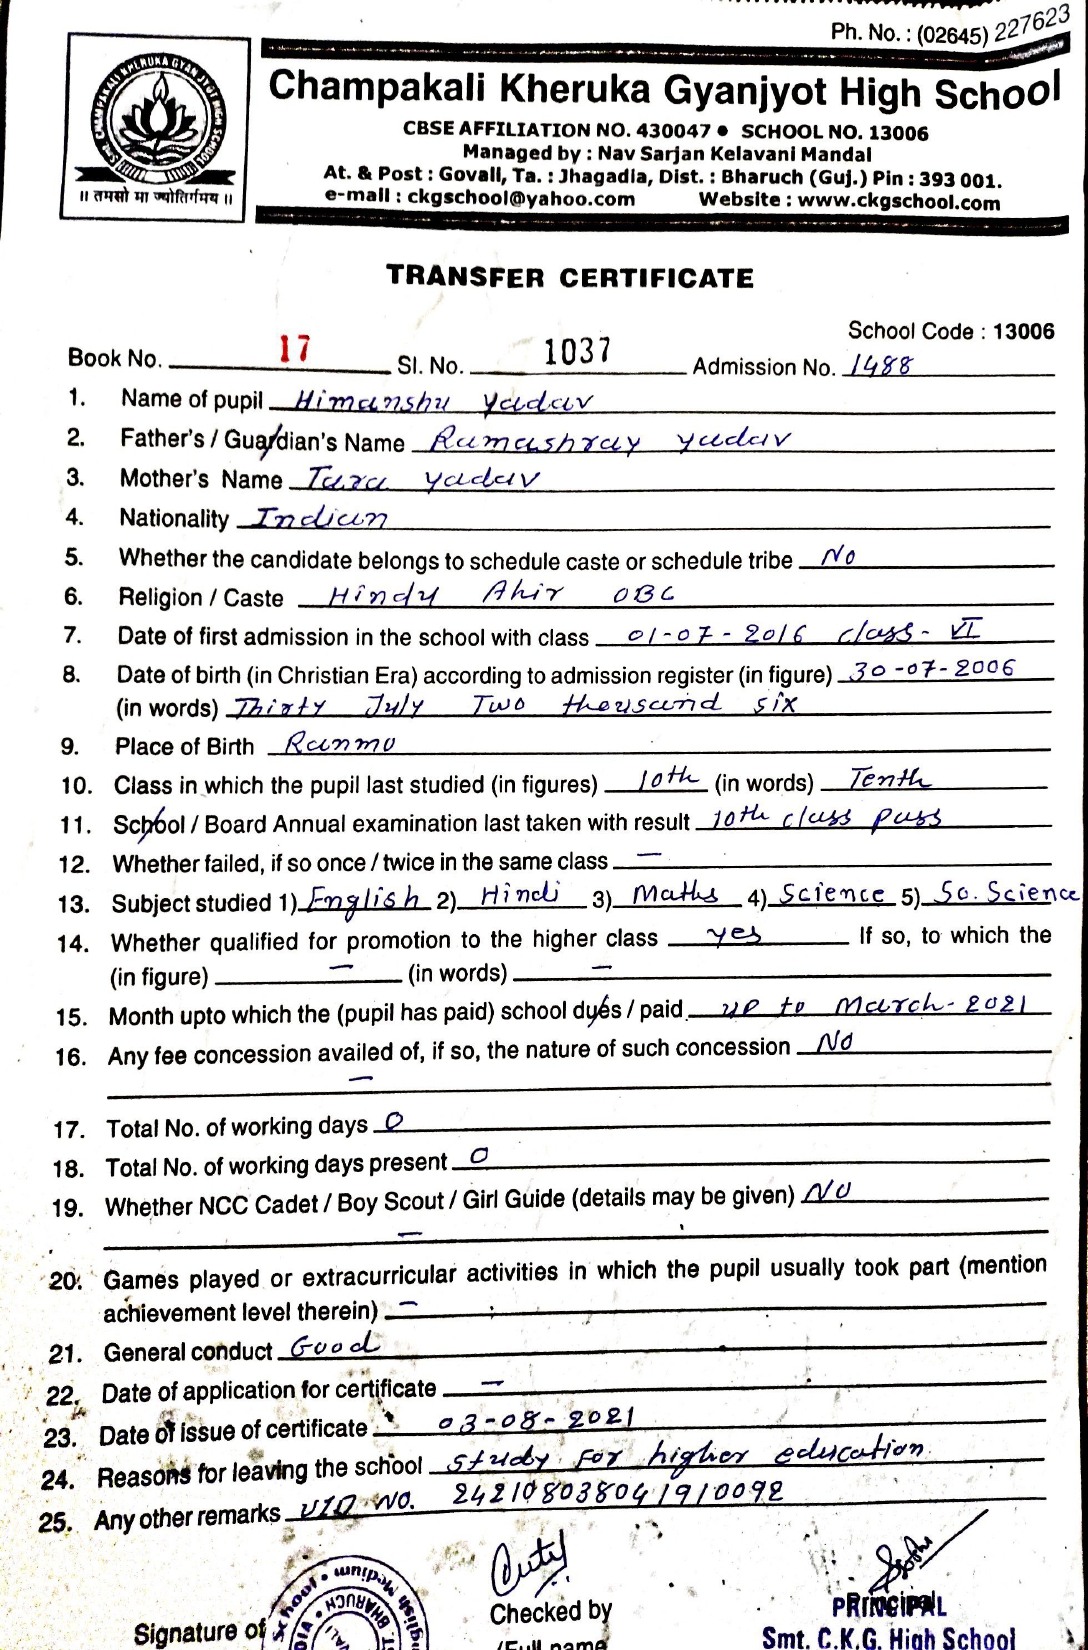 Ph. No. : (02645) 227623
Champakali Kheruka Gyanjyot High School
CBSE AFFILIATION NO. 430047 ● SCHOOL NO. 13006
Managed by : Nav Sarjan Kelavani Mandal
At. & Post : Govali, Ta. : Jhagadia, Dist. : Bharuch (Guj.) Pin : 393 001.
e-mail : ckgschool@yahoo.com Website : www.ckgschool.com
SMT. CHAMPAKALI KHERUKA GYANJYOT HIGH SCHOOL
॥ तमसो मा ज्योतिर्गमय ॥
TRANSFER CERTIFICATE
School Code : 13006
Book No. 17 Sl. No. 1037 Admission No. 1488
1. Name of pupil Himanshu Yadav
2. Father's / Guardian's Name Ramashray yadav
3. Mother's Name Tara yadav
4. Nationality Indian
5. Whether the candidate belongs to schedule caste or schedule tribe No
6. Religion / Caste Hindu Ahir OBC
7. Date of first admission in the school with class 01-07-2016 class-VI
8. Date of birth (in Christian Era) according to admission register (in figure) 30-07-2006
(in words) Thirty July Two thousand six
9. Place of Birth Ranmo
10. Class in which the pupil last studied (in figures) 10th (in words) Tenth
11. School / Board Annual examination last taken with result 10th class pass
12. Whether failed, if so once / twice in the same class —
13. Subject studied 1) English 2) Hindi 3) Maths 4) Science 5) So. Science
14. Whether qualified for promotion to the higher class yes If so, to which the
(in figure) — (in words) —
15. Month upto which the (pupil has paid) school dues / paid up to March-2021
16. Any fee concession availed of, if so, the nature of such concession No
—
17. Total No. of working days 0
18. Total No. of working days present 0
19. Whether NCC Cadet / Boy Scout / Girl Guide (details may be given) No
—
20. Games played or extracurricular activities in which the pupil usually took part (mention
achievement level therein) —
21. General conduct Good
22. Date of application for certificate —
23. Date of issue of certificate 03-08-2021
24. Reasons for leaving the school study for higher education
25. Any other remarks UID NO. 242108038041910092
Signature of Checked by PRINCIPAL
(Full name Smt. C.K.G. High School